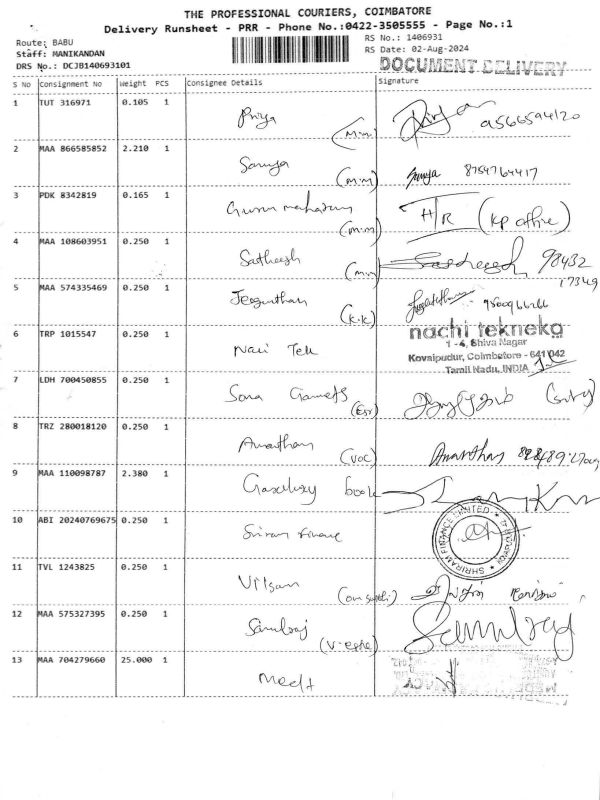 THE PROFESSIONAL COURIERS, COIMBATORE
Delivery Runsheet - PRR - Phone No.:0422-3505555 - Page No.:1
Route: BABU
Staff: MANIKANDAN
DRS No.: DCJB140693101
RS No.: 1406931
RS Date: 02-Aug-2024
DOCUMENT DELIVERY
S No Consignment No Weight PCS Consignee Details Signature
1 TUT 316971 0.105 1 Priya (m.m) 9566594120
2 MAA 866585852 2.210 1 Sowmya (m.m) 8754764417
3 PDK 8342819 0.165 1 (m.m) H/R (KP office)
4 MAA 108603951 0.250 1 Satheesh (m.m) 98432
17349
5 MAA 574335469 0.250 1 (K.K)
6 TRP 1015547 0.250 1 Navi Tek nachi tekneka
1 - 4, Shiva Nagar
Kovaipudur, Coimbatore - 641 042
Tamil Nadu, INDIA
7 LDH 700450855 0.250 1 Sona Garments (Esr)
8 TRZ 280018120 0.250 1 Ananthan (VOC)
9 MAA 110098787 2.380 1 book
10 ABI 20240769675 0.250 1 Sriram finance SHRIRAM FINANCE LIMITED
11 TVL 1243825 0.250 1
12 MAA 575327395 0.250 1 Samlraj Samlraj
13 MAA 704279660 25.000 1 Medt